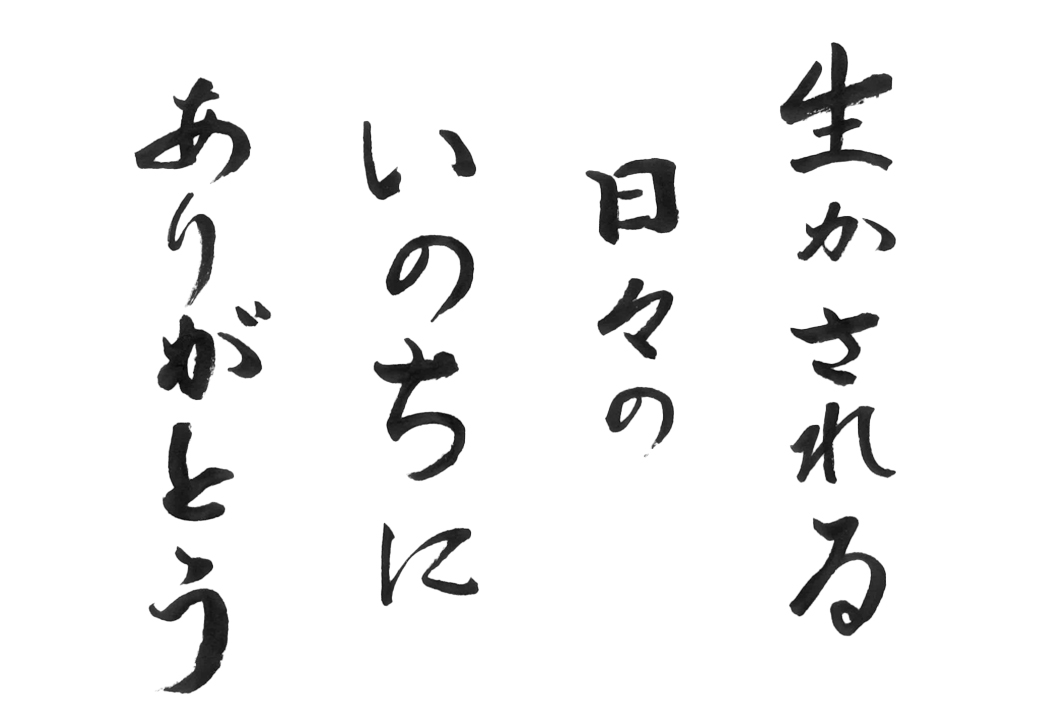 生かされる
日々の
いのちに
ありがとう